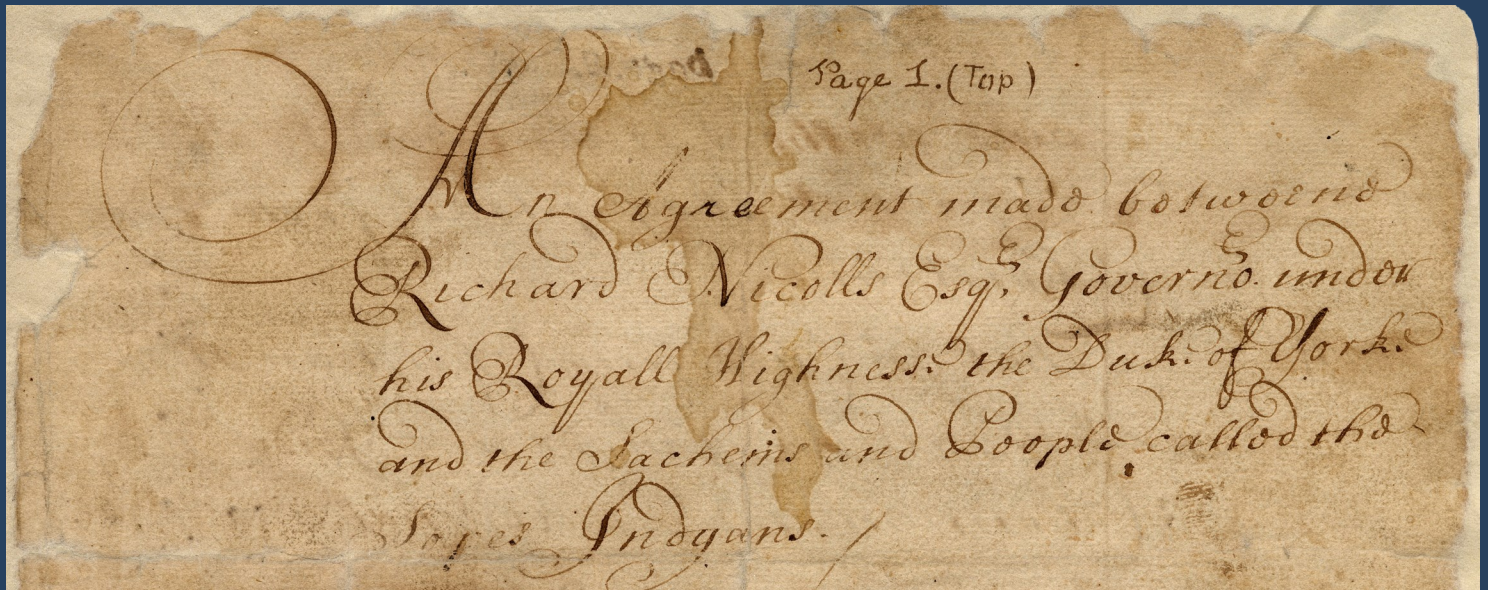 Page 1. (Top)
An Agreement made betweene
Richard Nicolls Esqr. Governor. under
his Royall Highnesse the Duke of Yorke
and the Sachems and People called the
Sopes Indyans.